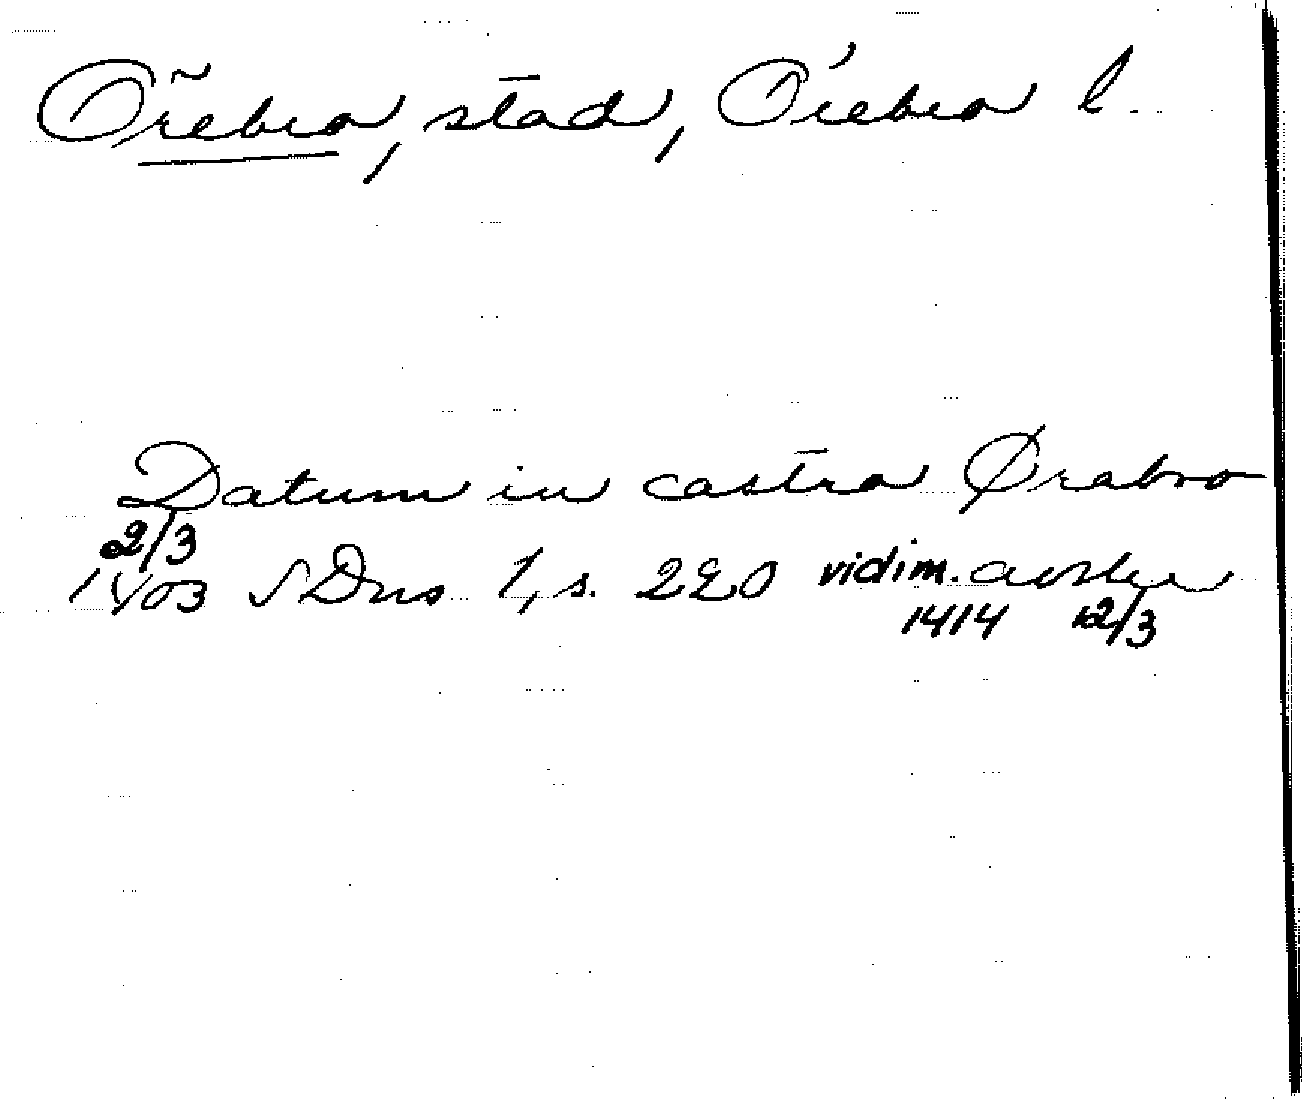 Örebro, stad, Örebro l.
Datum in castro Ørabro
2/3
1403 SDns 1, s. 220 vidim. avskr
1414 12/3